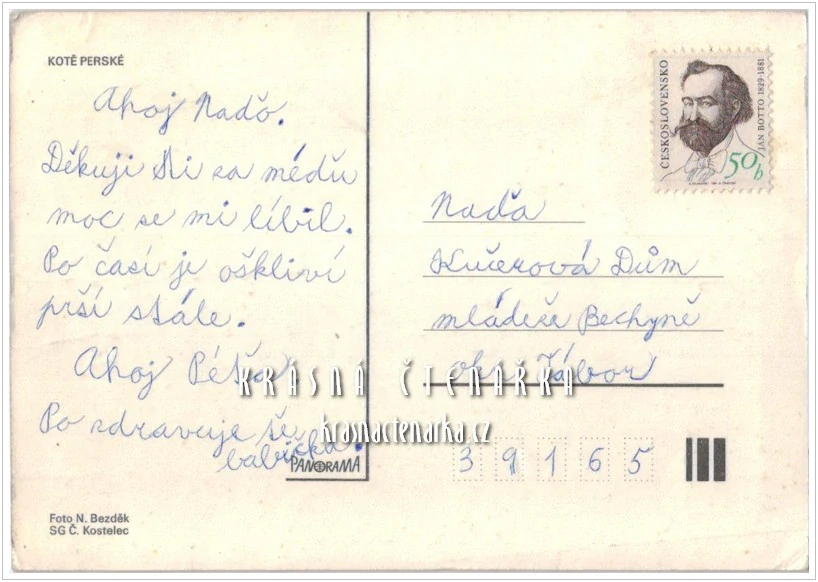 KOTĚ PERSKÉ
Ahoj Naďo.
Děkuji Ti za médu
moc se mi líbil.
Po časí je oškliví
prší stále.
Ahoj Péťa
Po zdravuje še
babička.
PANORAMA
Foto N. Bezděk
SG Č. Kostelec
ČESKOSLOVENSKO
JAN BOTTO 1829-1881
50h
Naďa
Kučerová Dům
mládeže Bechyně
okr. Tábor
39165
KRÁSNÁ ČTENÁŘKA
krasnactenarka.cz